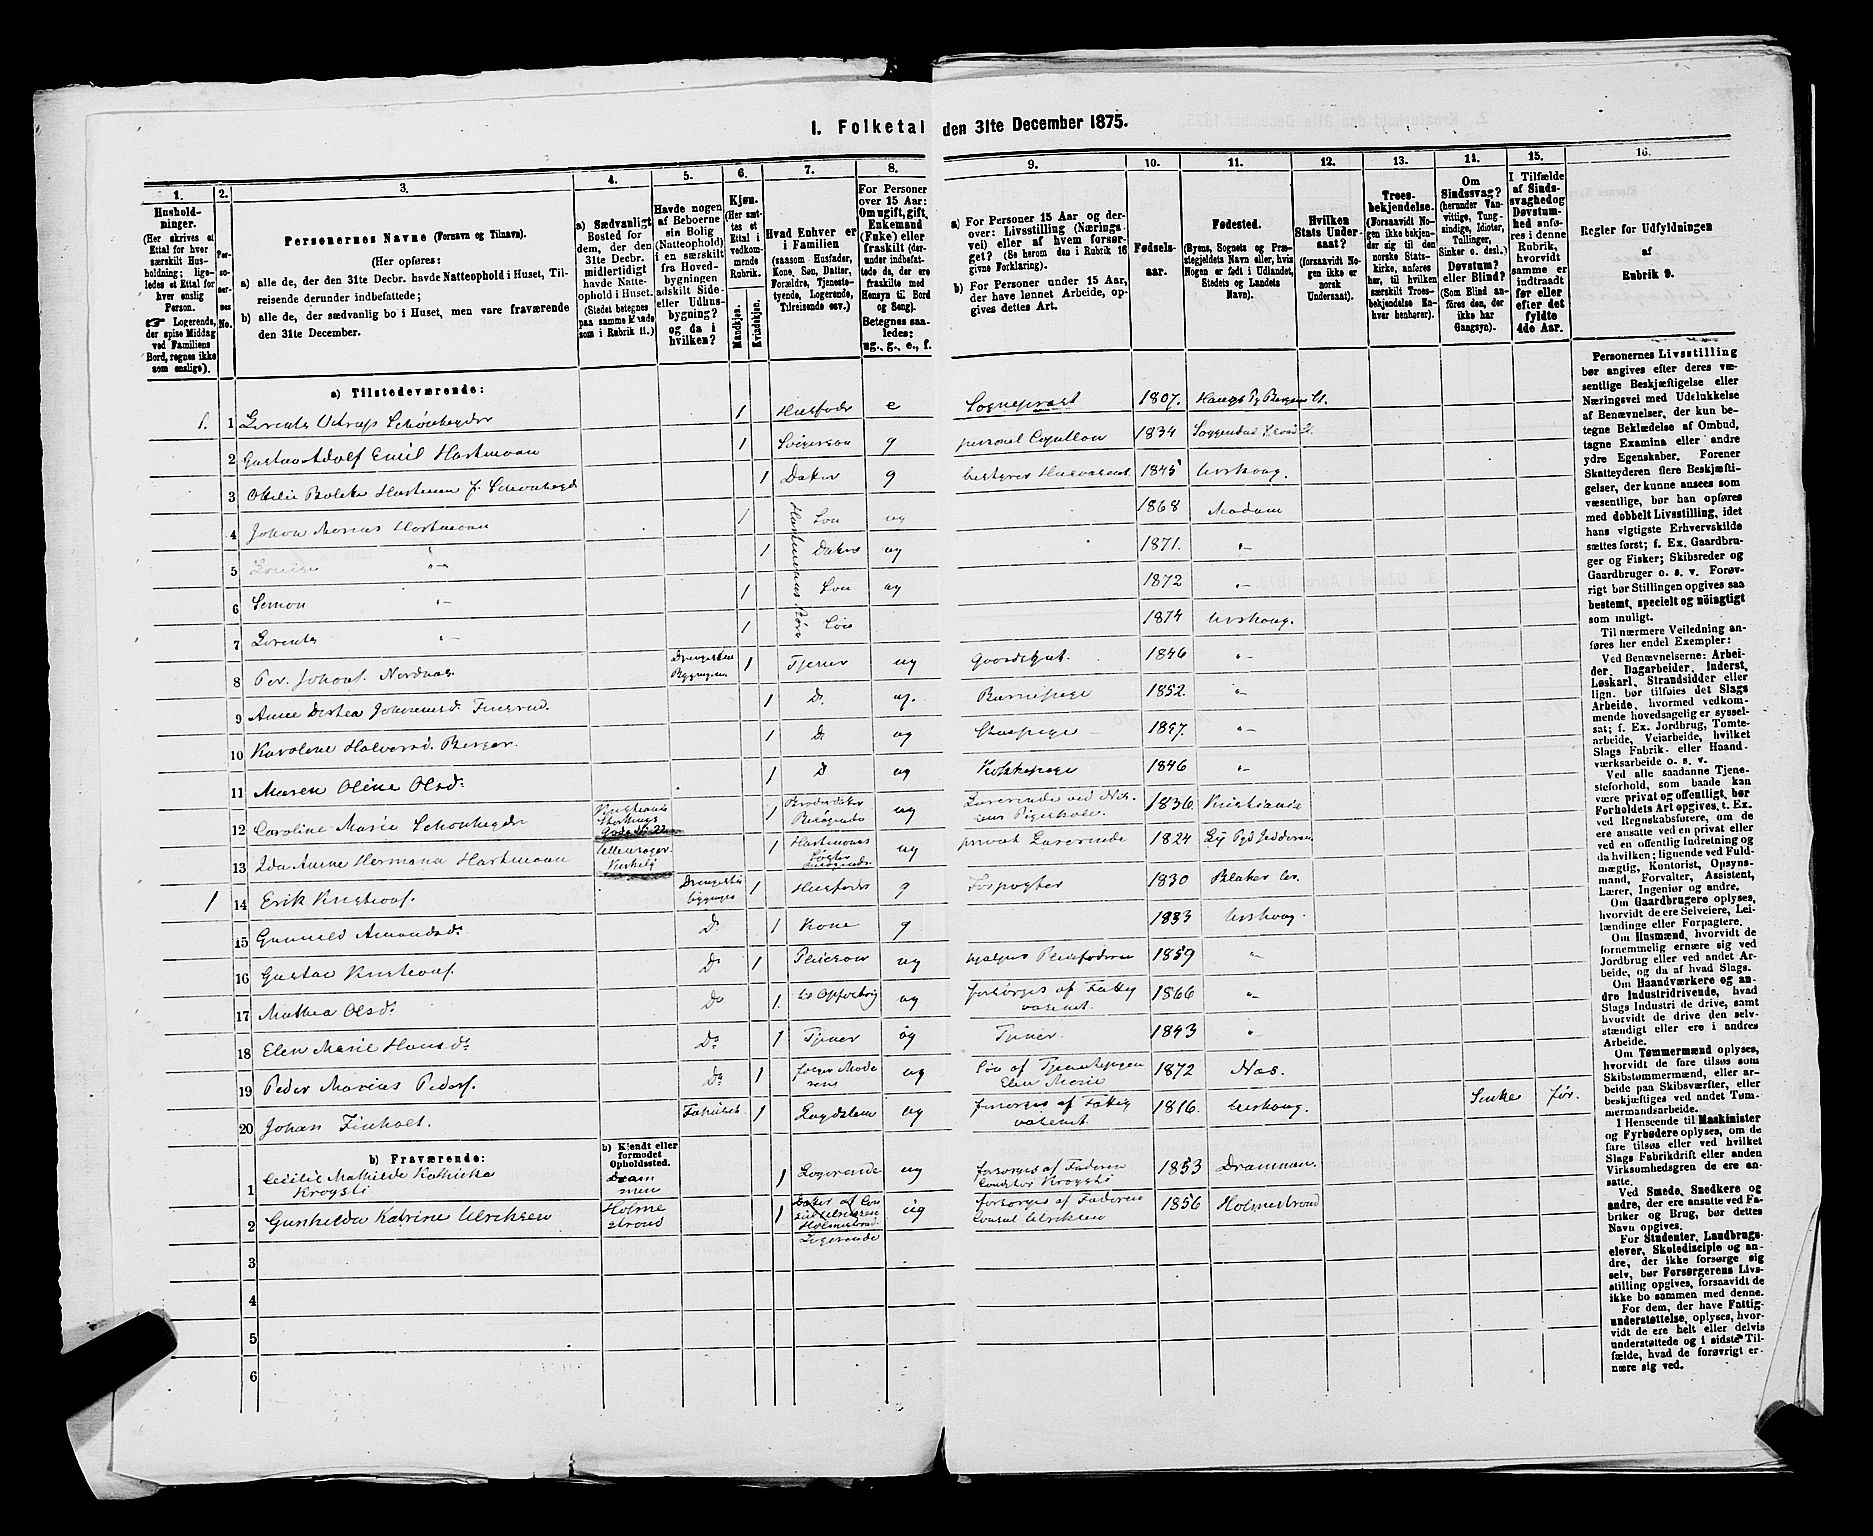 1. Folketal den 31te December 1875.
1. 2. 3. 4. 5. 6. 7. 8. 9. 10. 11. 12. 13. 14. 15. 16.
Hushold-
ninger.
(Her skrives et
Ettal for hver
særskilt Hus-
holdning; lige-
ledes et Ettal for
hver enslig
Person.
☞ Logerende,
der spise Middag
ved Familiens
Bord, regnes ikke
som enslige).
Per-
so-
ner-
nes
No.
Personernes Navne (Fornavn og Tilnavn).
(Her opføres:
a) alle de, der den 31te Decbr. havde Natteophold i Huset, Til-
reisende derunder indbefattede;
b) alle de, der sædvanlig bo i Huset, men vare fraværende
den 31te December.
a) Sædvanligt
Bosted for
dem, der den
31te Decbr.
midlertidigt
havde Natte-
ophold i Huset.
(Stedet betegnes
paa samme Maade
som i Rubrik 11.)
Havde nogen
af Beboerne
sin Bolig
(Natteophold)
i en særskilt
fra Hoved-
bygningen
adskilt Side-
eller Udhus-
bygning?
og da i
hvilken?
Kjøn.
(Her sæt-
tes et
Ettal i
vedkom-
mende
Rubrik.
Mandkjøn.
Kvindekjøn.
Hvad Enhver er
i Familien
(saasom Husfader,
Kone, Søn, Datter,
Forældre, Tjeneste-
tyende, Logerende,
Tilreisende osv.)
For Personer
over 15 Aar:
Om ugift, gift,
Enkemand
(Enke) eller
fraskilt (der-
under indbefat-
tede de, der ere
fraskilte med
Hensyn til Bord
og Seng).
Betegnes saa-
ledes:
ug., g., e., f.
a) For Personer 15 Aar og der-
over: Livsstilling (Nærings-
vei) eller af hvem forsør-
get? (Se herom den i Rubrik 16
givne Forklaring).
b) For Personer under 15 Aar,
der have lønnet Arbeide, op-
gives dettes Art.
Fødsels-
aar.
Fødested.
(Byens, Sognets og Præ-
stegjeldets Navn eller, hvis
Nogen er født i Udlandet,
Stedets og Landets
Navn).
Hvilken
Stats Under-
saat?
(forsaavidt No-
gen ikke er
norsk
Undersaat).
Troes-
bekjendelse.
(Forsaavidt No-
gen ikke bekjen-
der sig til den
norske Stats-
kirke, anføres
her, til hvilken
særskilt Troes-
bekjendelse En-
hver henhører).
Om
Sindssvag?
(herunder Van-
vittige, Tung-
sindige, Idioter,
Tullinger,
Sinker o. desl.)
Døvstum?
eller Blind?
(Som Blind an-
føres den, der
ikke har
Gangsyn).
I Tilfælde
af Sinds-
svaghed og
Døvstum-
hed anfø-
res i denne
Rubrik,
hvorvidt
samme er
indtraadt
før eller
efter det
fyldte
4de Aar.
Regler for Udfyldningen
af
Rubrik 9.
a) Tilstedeværende:
1. 1 Lorents Schönheyder 1 Husfader e Sogneprest 1807.
2 Gustav Adolf Emil Hartmann 1 Svigersøn g 1834
3 Bolette Hartmann f. Schönheyder 1 Datter g bestyrer Husvæsenet 1845 Urskoug.
4 Johan Marius Hartmann 1 Søn ug 1868 Modum
5 Louise 〃 1 Datter ug 1871. 〃
6 Simon 〃 1 Søn ug 1872 〃
7 Lorents 〃 1 Søn 1874 Urskoug.
Hartmanns Børn
8 Per Johans. 1 Tjener ug Gaardsgut. 1846 〃
9 Anne Dortea Johannesd. 1 Do ug. Barnepige 1852. 〃
10 Karoline Halvorsd. Berger. 1 Do ug Stuepige 1857. 〃
11 Maren Oline Olsd. 1 Do ug Kokkepige 1846 〃
12 Caroline Marie Schönheyder 1 Broderdatter Besøgende ug Lærerinde ved 1836. Kristiania
13 Ida Anne Hermana Hartmann 1 Hartmanns Søster besøgende ug privat Lærerinde 1824
1 14 Erik Kristians. 1 Husfader g Forpagter 1830 Blaker
15 Gunnild Amundsd. Do 1 Kone g 1833 Urskoug.
16 Gustav Kristians. Do 1 Pleiesøn ug hjælper Pleiefaderen 1859 〃
17 Mathea Olsd. Do 1 ug forsørges af Fattig
væsenet. 1866 〃
18 Elen Marie Hansd. Do 1 Tjener ug Tjener. 1843 〃
19 Peder Marius Peders. Do 1 ug Søn af Tjenestepigen
Elen Marie 1872 Næs.
20 Johan Finholt. 1 Lægdslem ug forsørges af Fattig
væsenet. 1816. Urskoug. Sinke før.
b) Fraværende:
b) Kjendt eller
formodet
Opholdssted.
1 Cecilie Mathilde Kathinka
Krogsti Dram
men 1 Logerende ug forsørges af Faderen
Krogsti 1853 Drammen.
2 Gunhilda Katrine Ulriksen Holme
strand 1 Datter af Con
sul Ulriksen
Holmestrand
Logerende ug forsørges af Faderen
Consul Ulriksen 1856 Holmestrand
3
4
5
6
Personernes Livsstilling
bør angives efter deres væ-
sentlige Beskjæftigelse eller
Næringsvei med Udelukkelse
af Benævnelser, der kun be-
tegne Beklædelse af Ombud,
tagne Examina eller andre
ydre Egenskaber. Forener
Skatteyderen flere Beskjæfti-
gelser, der kunne ansees som
væsentlige, bør han opføres
med dobbelt Livsstilling, idet
hans vigtigste Erhvervskilde
sættes først; f. Ex. Gaardbru-
ger og Fisker; Skibsreder og
Gaardbruger o. s. v. Forøv-
rigt bør Stillingen opgives saa
bestemt, specielt og nöiagtigt
som muligt.
Til nærmere Veiledning an-
føres her endel Exempler:
Ved Benævnelserne: Arbei-
der, Dagarbeider, Inderst,
Løskarl, Strandsidder eller
lign. bør tilføies det Slags
Arbeide, hvormed vedkom-
mende hovedsagelig er syssel-
sat; f. Ex. Jordbrug, Tomte-
arbeide, Veiarbeide, hvilket
Slags Fabrik- eller Haand-
værksarbeide o. s. v.
Ved alle saadanne Tjene-
steforhold, som baade kan
være privat og offentligt, bør
Forholdets Art opgives, t. Ex.
ved Regnskabsførere, om de
ere ansatte ved en privat eller
ved en offentlig Indretning og
da hvilken; lignende ved Fuld-
mægtig, Kontorist, Opsyns-
mand, Forvalter, Assistent,
Lærer, Ingeniør og andre.
Om Gaardbrugere oplyses,
hvorvidt de ere Selveiere, Lei-
lændinge eller Forpagtere.
Om Husmænd, hvorvidt de
fornemmelig ernære sig ved
Jordbrug eller ved andet Ar-
beide, og da af hvad Slags.
Om Haandværkere og an-
dre Industridrivende, hvad
Slags Industri de drive, samt
hvorvidt de drive den selv-
stændigt eller ere i andres
Arbeide.
Om Tømmermænd oplyses,
hvorvidt de fare tilsøs som
Skibstømmermænd, eller ar-
beide paa Skibsværfter, eller
beskjæftiges ved andet Tøm-
mermandsarbeide.
I Henseende til Maskinister
og Fyrbødere oplyses, om de
fare tilsøs eller ved hvilket
Slags Fabrikdrift eller anden
Virksomhedsgren de ere an-
satte.
Ved Smede, Snedkere og
andre, der ere ansatte ved Fa-
briker og Brug, bør dettes
Navn opgives.
For Studenter, Landbrugs-
elever, Skoledisciple og an-
dre, der ikke forsørge sig
selv, bør Forsørgerens Livs-
stilling opgives, forsaavidt de
ikke bo sammen med denne.
For dem, der have Fattig-
understøttelse, oplyses, hvor-
vidt de ere helt eller delvis
understøttede og i sidste Til-
fælde, hvad de forøvrigt er-
nære sig ved.